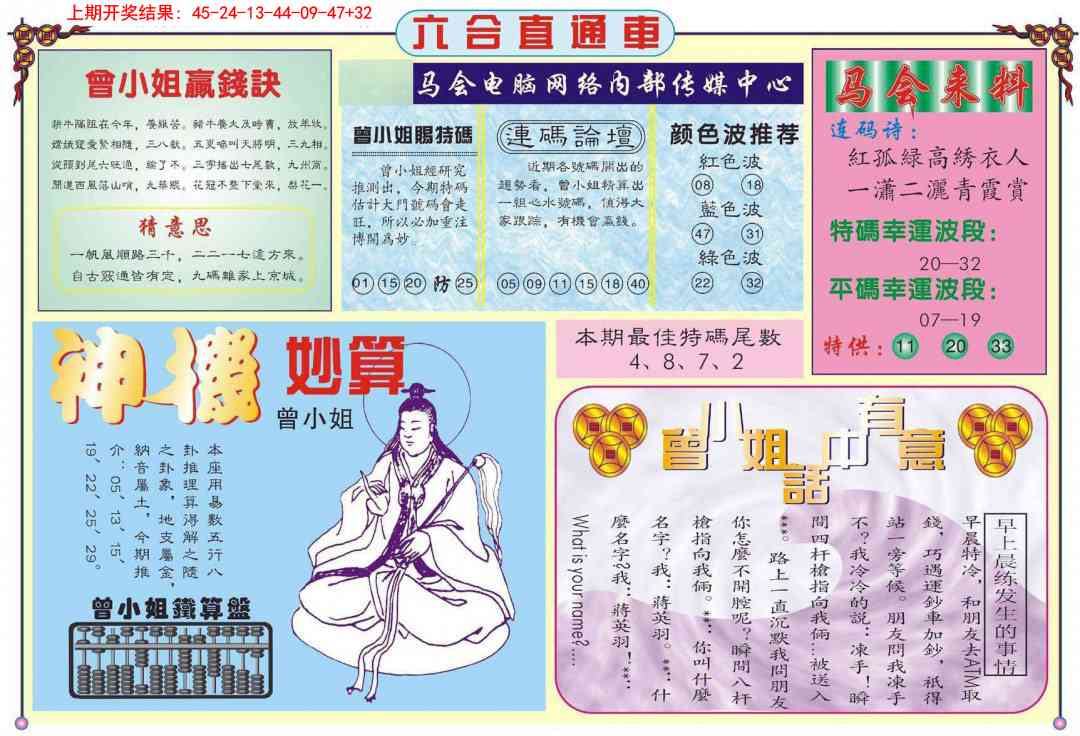 上期开奖结果：45-24-13-44-09-47+32
六合直通車
曾小姐贏錢訣
猜意思
一帆風順路三千，二二一七遠方來。
自古窮通皆有定，九碼離家上京城。
马会电脑网络内部传媒中心
曾小姐賜特碼
曾小姐經研究
推測出，今期特碼
估計大門號碼會走
旺，所以必加重注
博開為妙。
01 15 20 防 25
連碼論壇
近期各號碼開出的
趨勢看，曾小姐精算出
一組心水號碼，值得大
家跟踪，有機會贏錢。
05 09 11 15 18 40
颜色波推荐
紅色波
08 18
藍色波
47 31
綠色波
22 32
马会来料
连码诗：
紅孤緑高綉衣人
一瀟二灑青霞賞
特碼幸運波段：
20—32
平碼幸運波段：
07—19
特供：11 20 33
神機妙算
曾小姐
本座用易數五行八
卦推理算得解之隨
之卦象，地支屬金，
納音屬土，今期推
介：05、13、15、
19、22、25、29。
曾小姐鐵算盤
本期最佳特碼尾數
4、8、7、2
曾小姐話中有意
早上晨练发生的事情
早晨特冷，和朋友去ATM取
錢，巧遇運鈔車加鈔，祇得
站一旁等候。朋友問我凍手
不？我冷冷的說：凍手！瞬
間四杆槍指向我倆…被送入
***。路上一直沉默我問朋友
你怎麼不開腔呢？瞬間八杆
槍指向我倆。**：你叫什麼
名字？我：蔣英羽。**：什
麼名字?我：蔣英羽！**：
What is your name?....